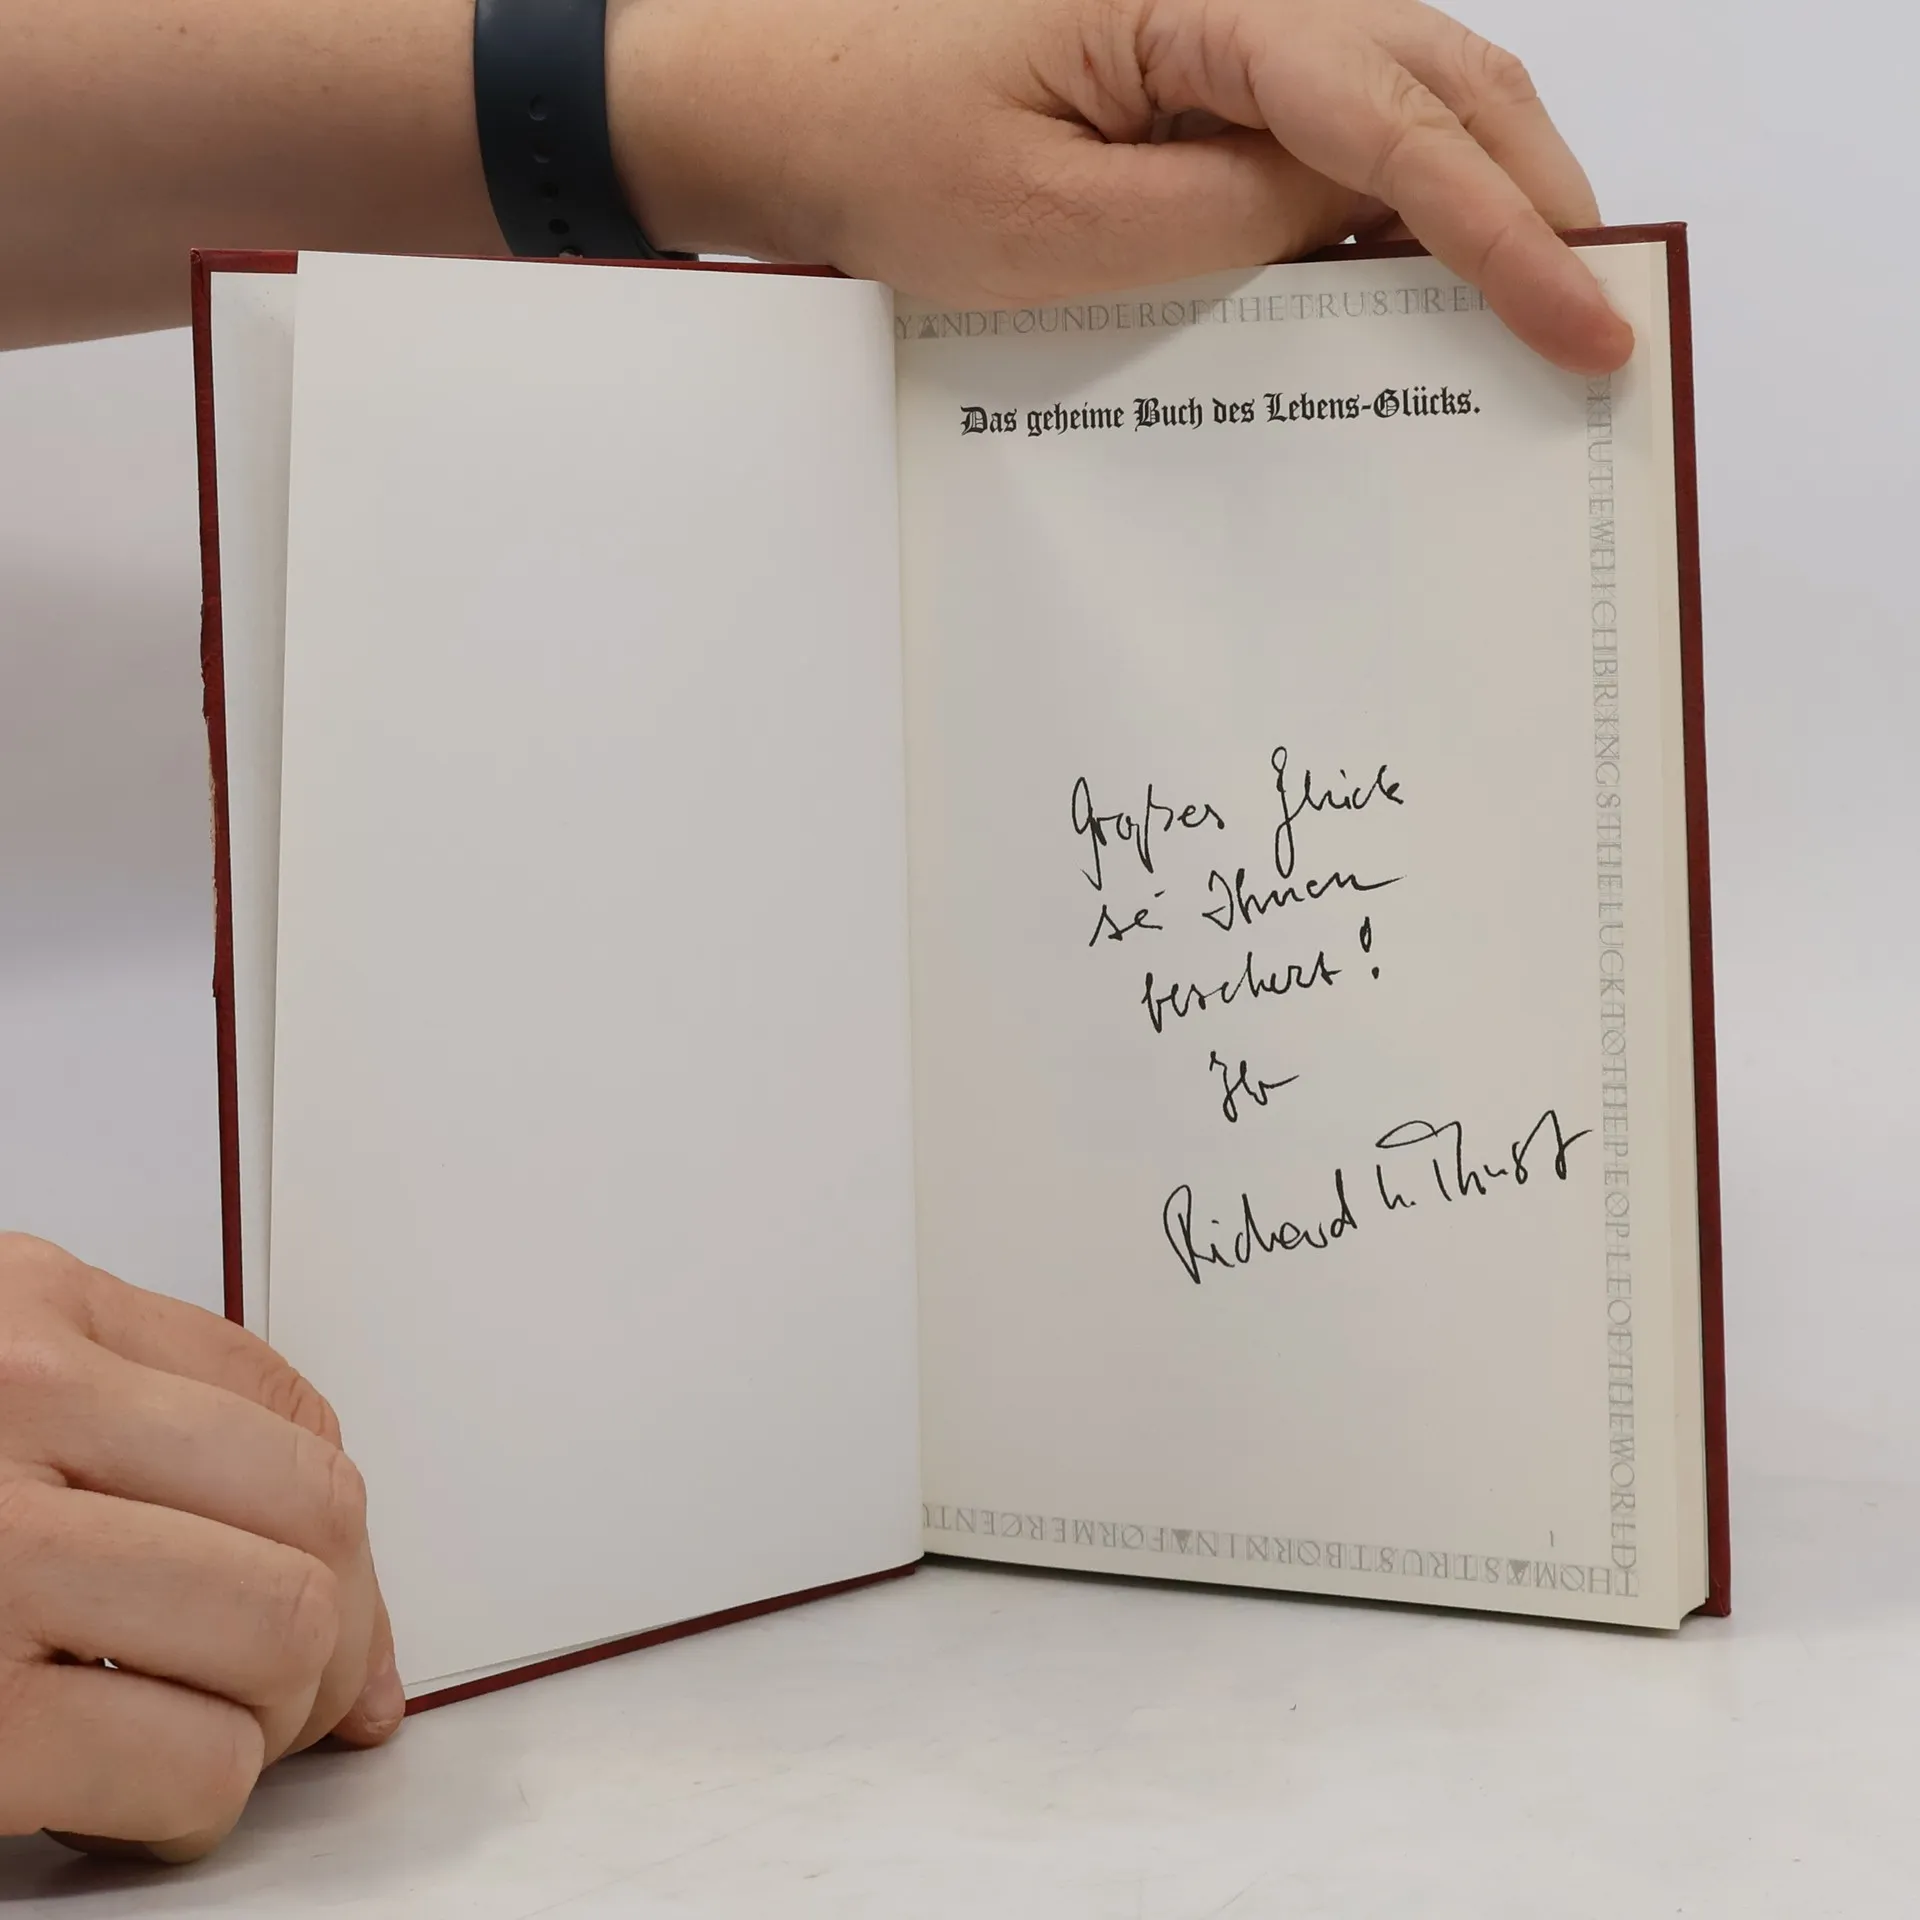 YANDFOUNDEROFTHETRUSTREI
Das geheime Buch des Lebens-Glücks.
Großes Glück
sei Ihnen
beschert!
Ihr
Richard W. Trust
CKTUTEWHICHBRINGSTHELUCKTOTHEPEOPLEOFTHEWORLD
1
THOMASTRUSTBORNINAFORMERCENTU